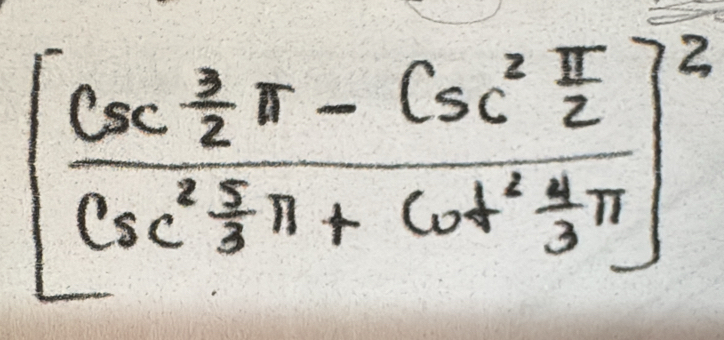 [Csc 3/2 π - Csc² π/2]²
Csc² 5/3 π + Cot² 4/3 π